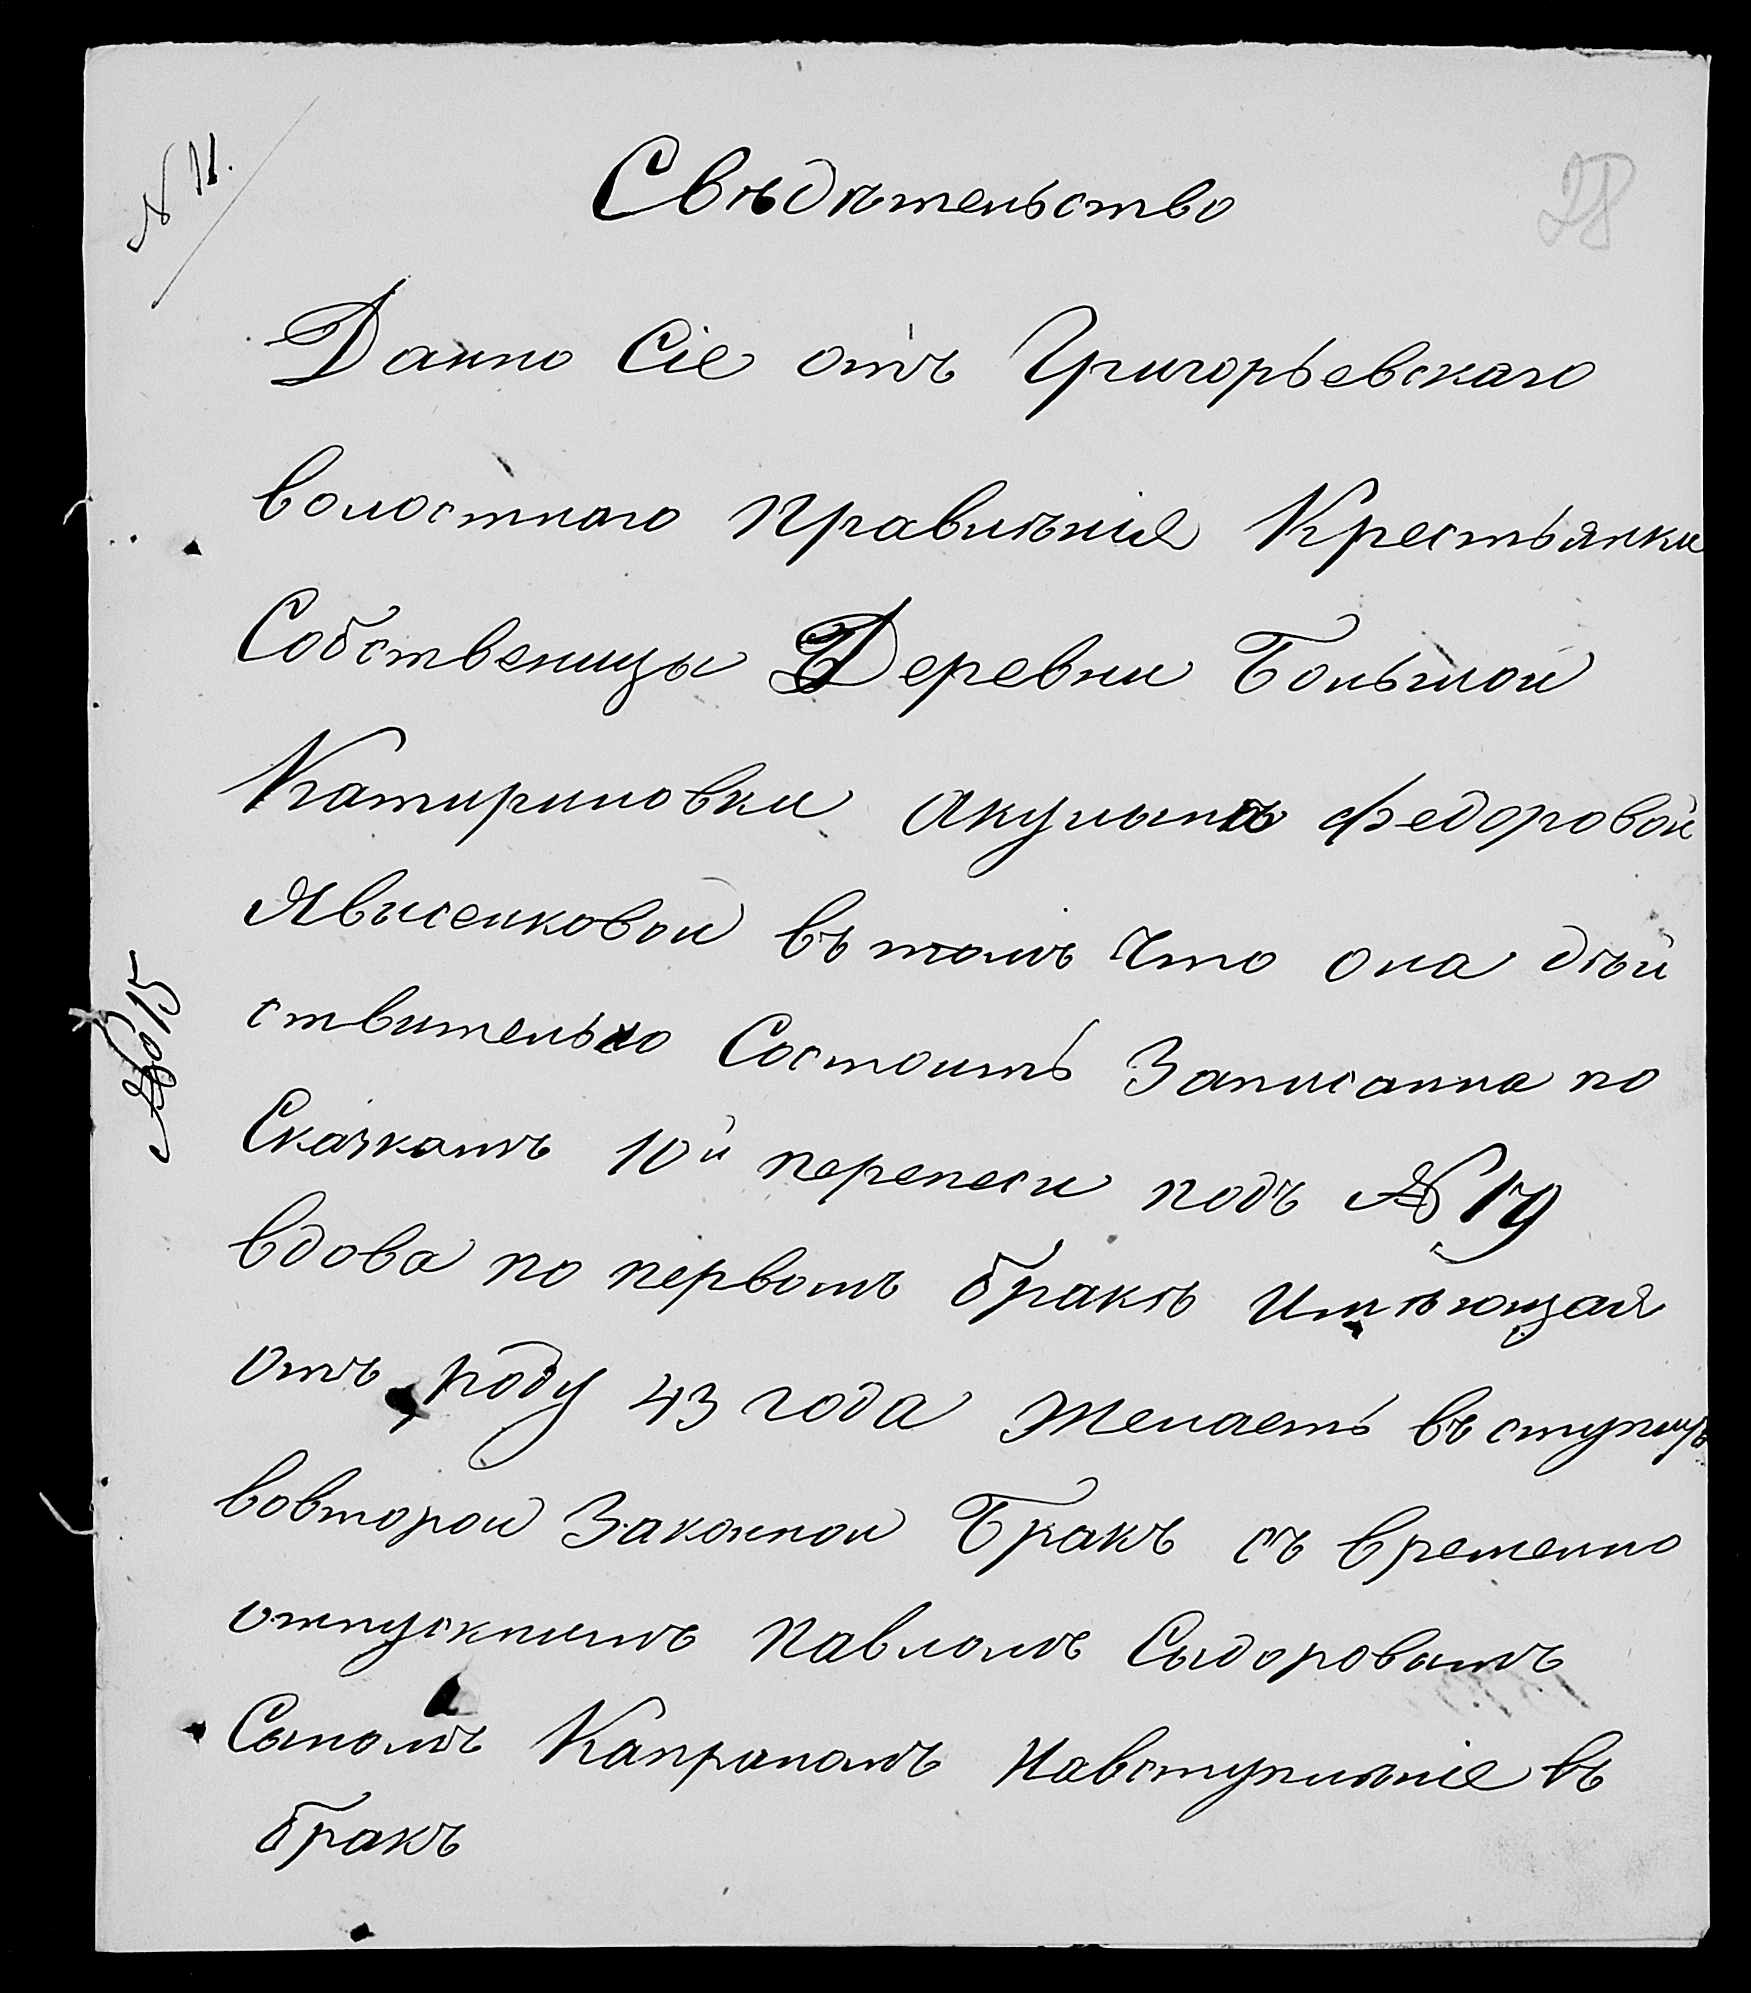 N 11.
28
Свѣдѣтельство
Данно Сіе отъ Григорьевскаго
волостнаго правилѣнія Крестьянки
Собственицы Деревни Большой
Катириновки Акулынѣ Федоровой
Явысенковой въ томъ что она дѣй
ствительно Состоитъ Записанна по
Сказкамъ 10й переписи подъ № 19
вдова по первомъ бракѣ Имѣющая
отъ роду 43 года Желаетъ въ ступить
вовторой Законной Бракъ съ временно
отпускнымъ Павломъ Сыдоровымъ
Сыномъ Капраномъ Навступлѣніе въ
бракъ
№ 15